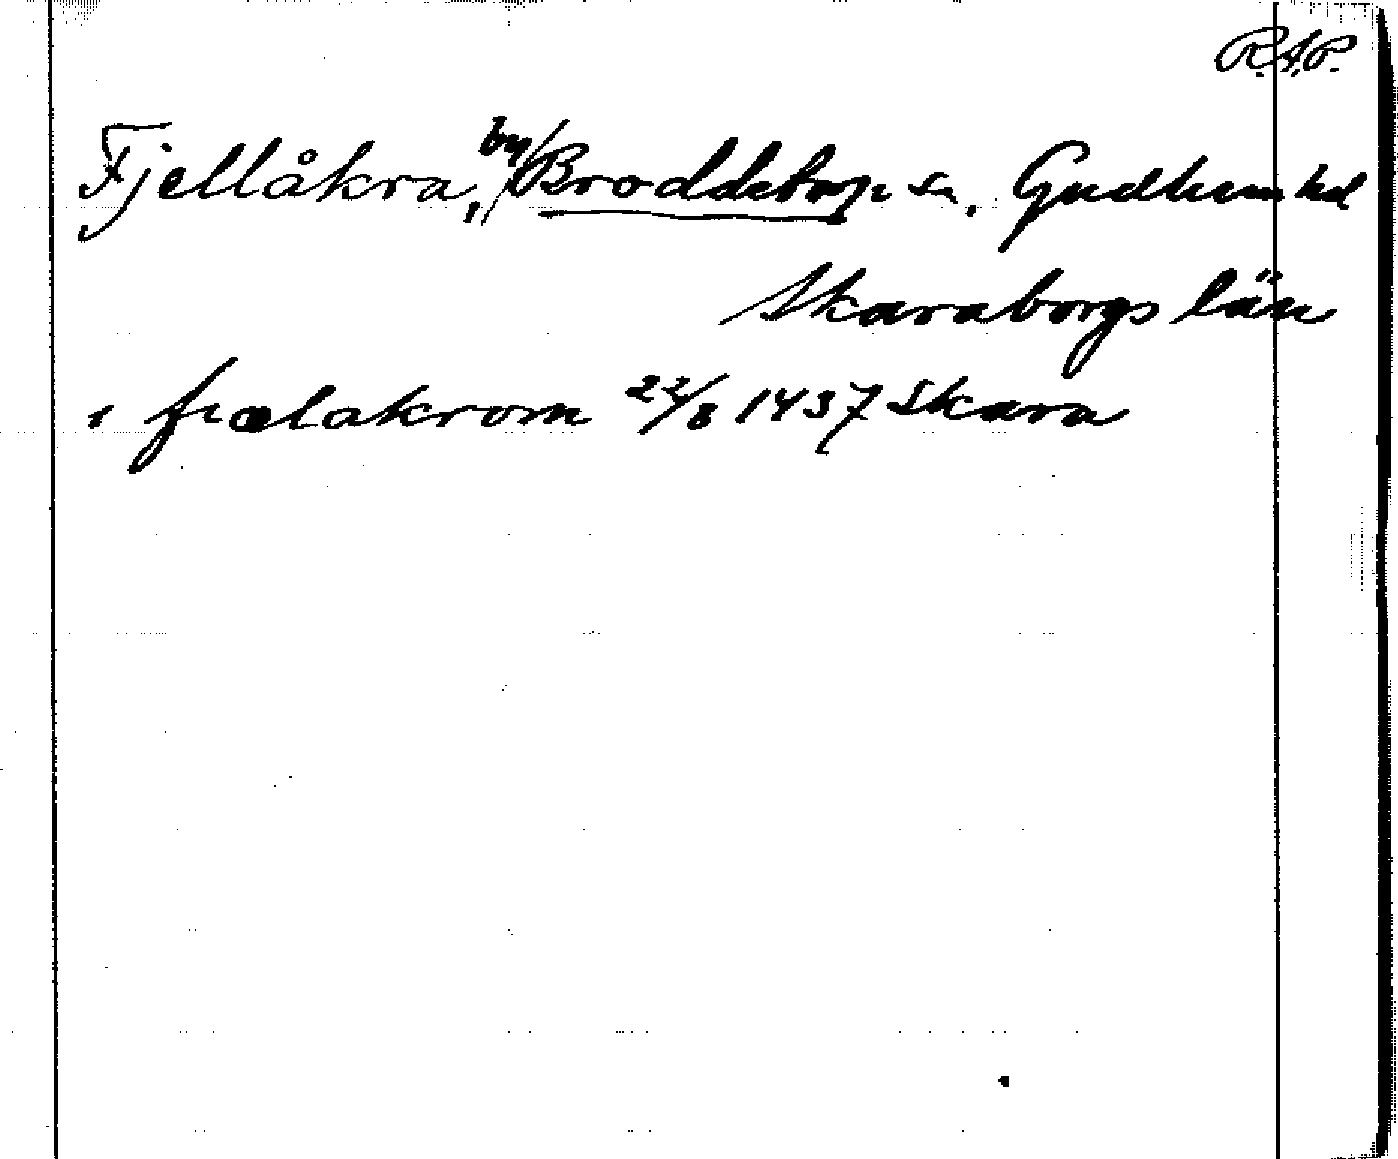 R.A.P.
Fjellåkra, by, Broddetorp sn, Gudhem hd
Skaraborgs län
i fiælakrom 22/8 1437 Skara